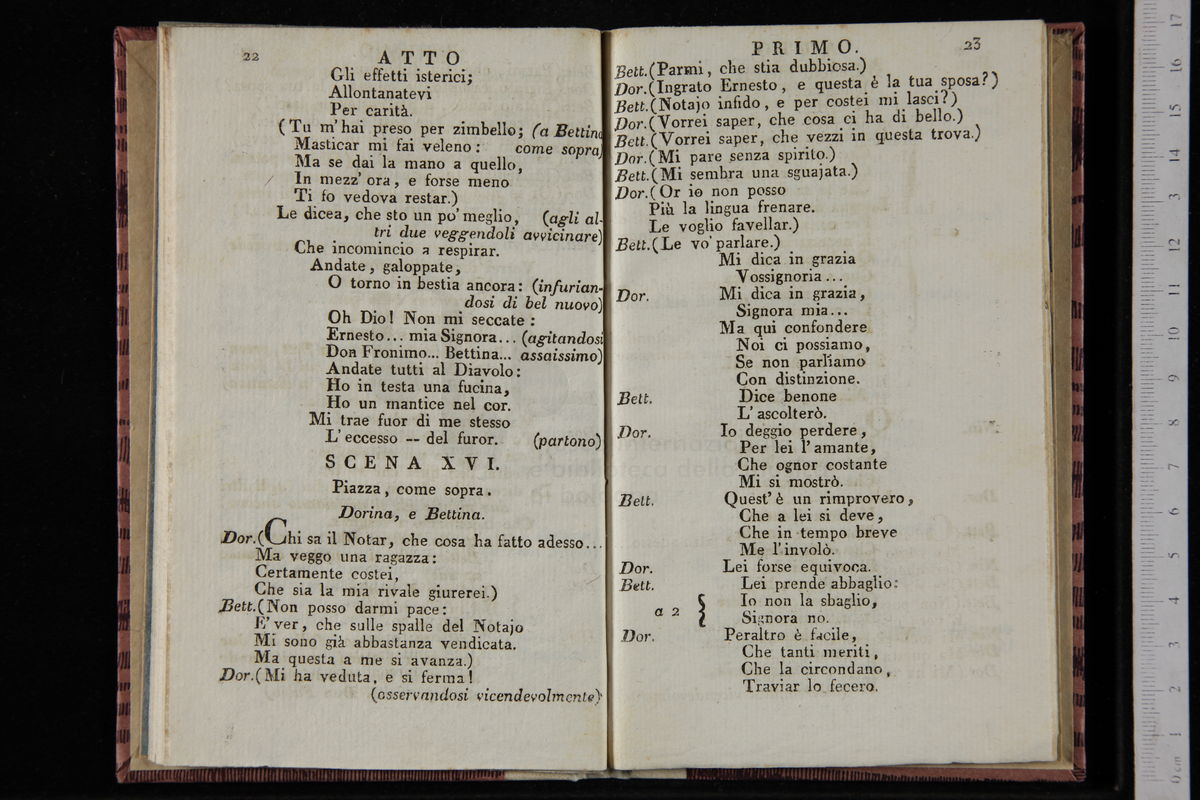 22
ATTO
Gli effetti isterici;
Allontanatevi
Per carità.
(Tu m'hai preso per zimbello; (a Bettina
Masticar mi fai veleno: come sopra)
Ma se dai la mano a quello,
In mezz' ora, e forse meno
Ti fo vedova restar.)
Le dicea, che sto un po' meglio, (agli al-
tri due veggendoli avvicinare)
Che incomincio a respirar.
Andate, galoppate,
O torno in bestia ancora: (infurian-
dosi di bel nuovo)
Oh Dio! Non mi seccate:
Ernesto... mia Signora... (agitandosi
Don Fronimo... Bettina... assaissimo)
Andate tutti al Diavolo:
Ho in testa una fucina,
Ho un mantice nel cor.
Mi trae fuor di me stesso
L'eccesso -- del furor. (partono)
SCENA XVI.
Piazza, come sopra.
Dorina, e Bettina.
Dor.(Chi sa il Notar, che cosa ha fatto adesso...
Ma veggo una ragazza:
Certamente costei,
Che sia la mia rivale giurerei.)
Bett.(Non posso darmi pace:
E' ver, che sulle spalle del Notajo
Mi sono già abbastanza vendicata.
Ma questa a me si avanza.)
Dor.(Mi ha veduta, e si ferma!
(osservandosi vicendevolmente)
PRIMO.
23
Bett.(Parmi, che stia dubbiosa.)
Dor.(Ingrato Ernesto, e questa è la tua sposa?)
Bett.(Notajo infido, e per costei mi lasci?)
Dor.(Vorrei saper, che cosa ci ha di bello.)
Bett.(Vorrei saper, che vezzi in questa trova.)
Dor.(Mi pare senza spirito.)
Bett.(Mi sembra una sguajata.)
Dor.(Or io non posso
Più la lingua frenare.
Le voglio favellar.)
Bett.(Le vo' parlare.)
Mi dica in grazia
Vossignoria...
Dor. Mi dica in grazia,
Signora mia...
Ma qui confondere
Noi ci possiamo,
Se non parliamo
Con distinzione.
Bett. Dice benone
L'ascolterò.
Dor. Io deggio perdere,
Per lei l'amante,
Che ognor costante
Mi si mostrò.
Bett. Quest' è un rimprovero,
Che a lei si deve,
Che in tempo breve
Me l'involò.
Dor. Lei forse equivoca.
Bett. Lei prende abbaglio:
a 2 { Io non la sbaglio,
Signora no.
Dor. Peraltro è facile,
Che tanti meriti,
Che la circondano,
Traviar lo fecero.